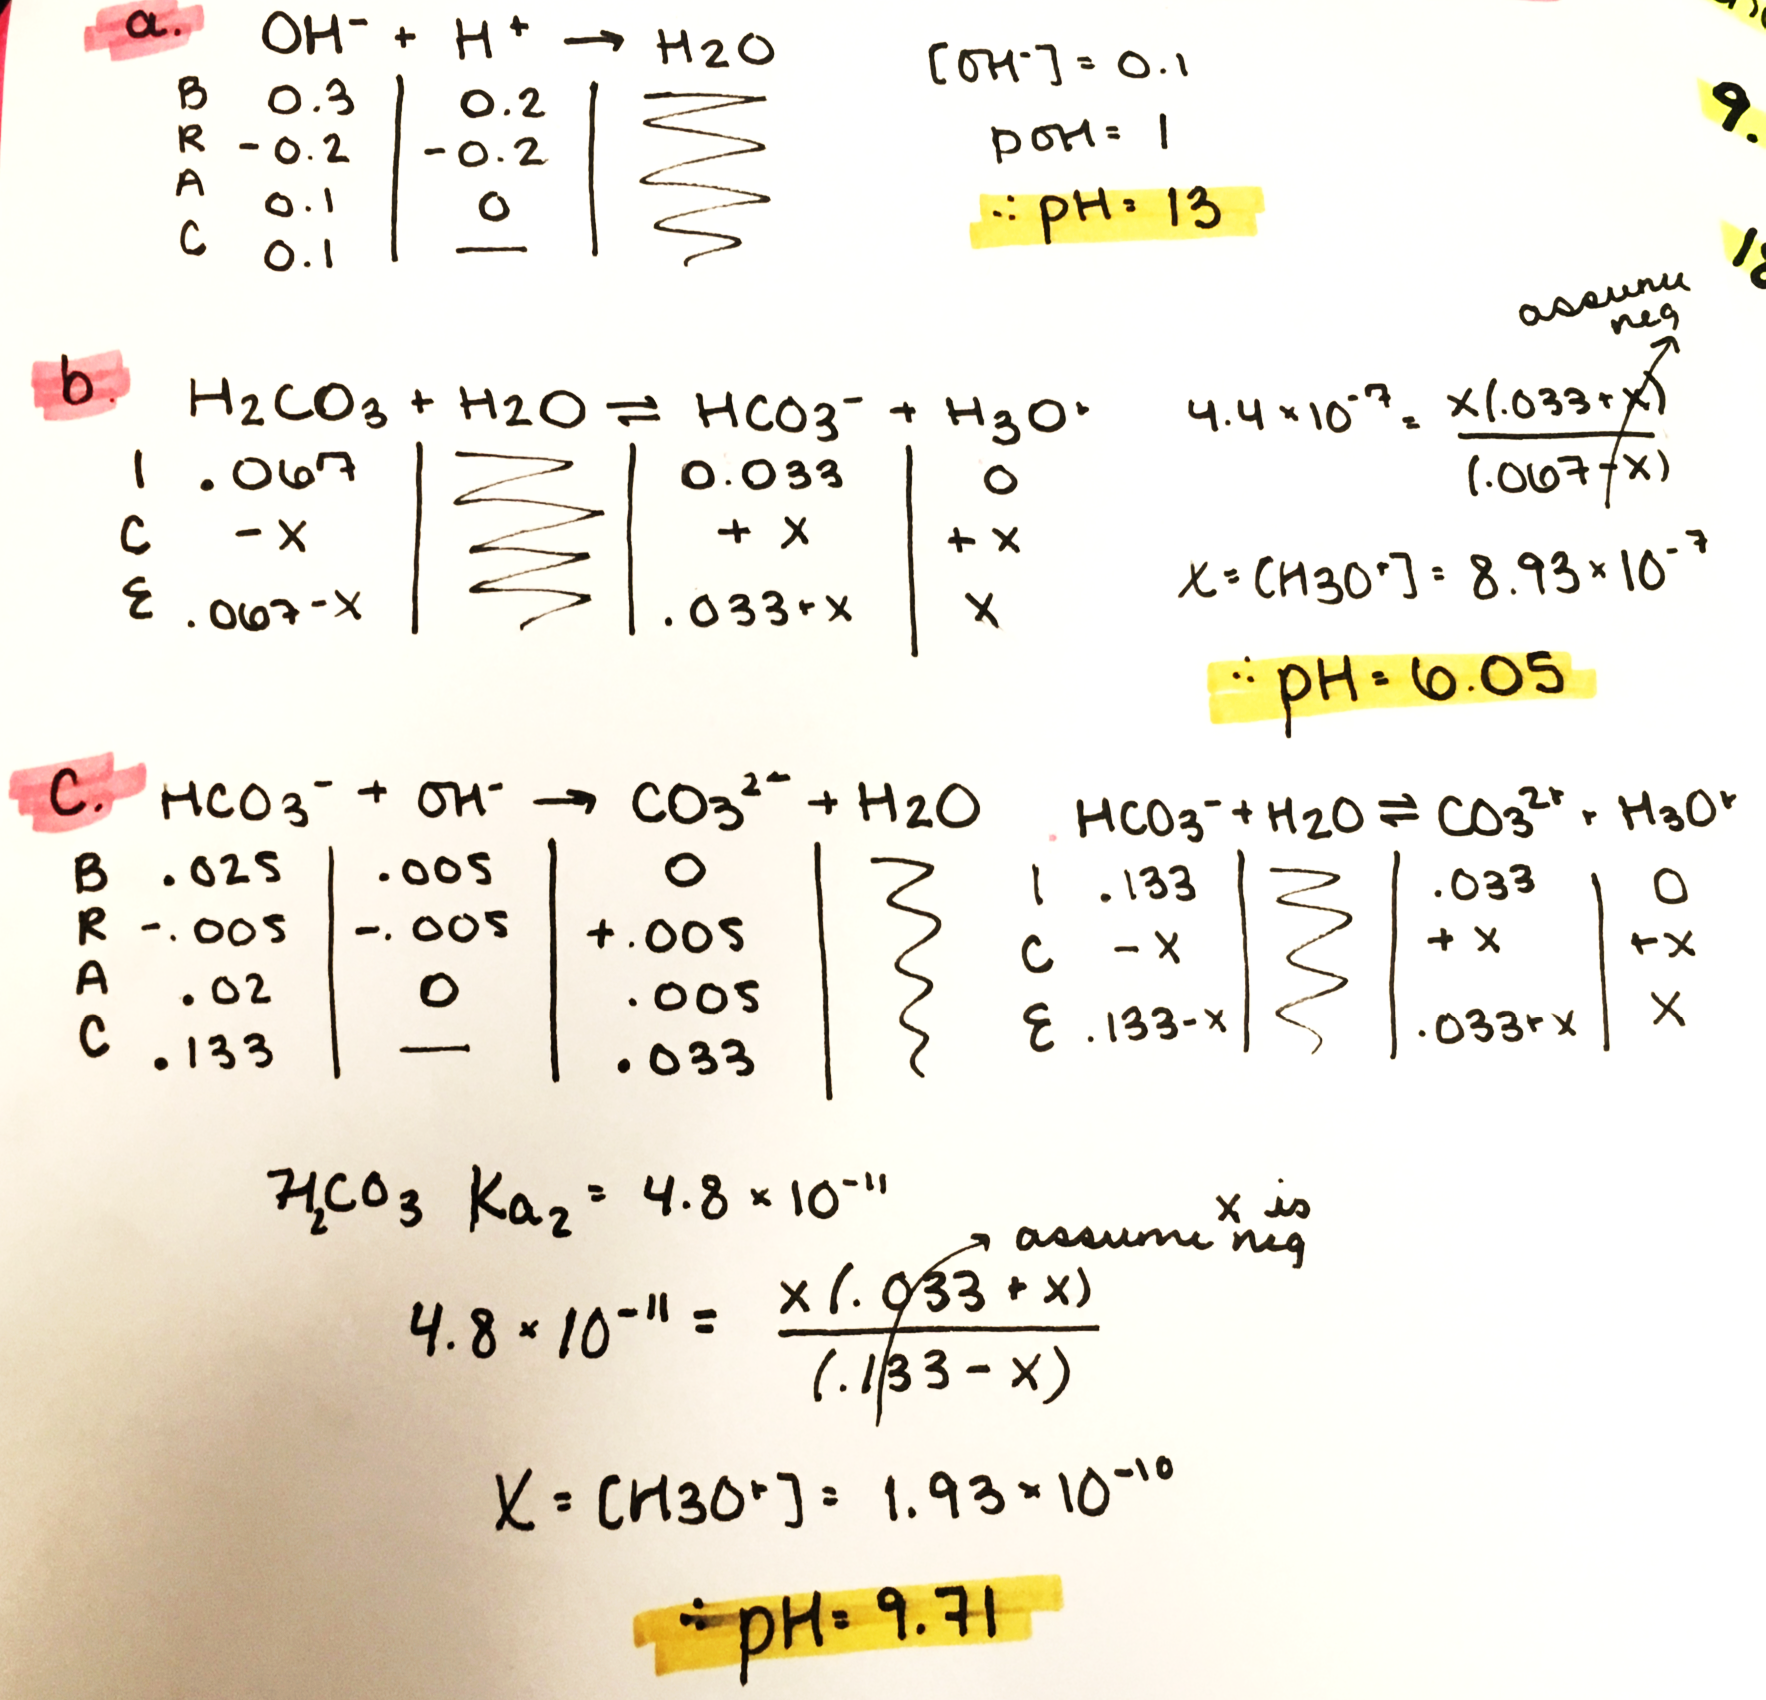 a. OH⁻ + H⁺ → H2O
B 0.3 | 0.2 |
R -0.2 | -0.2 |
A 0.1 | 0 |
C 0.1 | — |
[OH⁻] = 0.1
pOH = 1
∴ pH = 13
9.
b. H2CO3 + H2O ⇌ HCO3⁻ + H3O⁺
I .067 | | 0.033 | 0
C -x | | + x | + x
E .067-x | | .033+x | x
assume
neg
4.4 × 10⁻⁷ = x(.033+x)
(.067-x)
x = [H3O⁺] = 8.93 × 10⁻⁷
∴ pH = 6.05
C. HCO3⁻ + OH⁻ → CO3²⁻ + H2O
B .025 | .005 | 0 |
R -.005 | -.005 | +.005 |
A .02 | 0 | .005 |
C .133 | — | .033 |
HCO3⁻ + H2O ⇌ CO3²⁺ + H3O⁺
I .133 | | .033 | 0
C -x | | + x | +x
E .133-x | | .033+x | x
H2CO3 Ka2 = 4.8 × 10⁻¹¹
assume x is neg
4.8 × 10⁻¹¹ = x(.033 + x)
(.133 - x)
X = [H3O⁺] = 1.93 × 10⁻¹⁰
∴ pH = 9.71